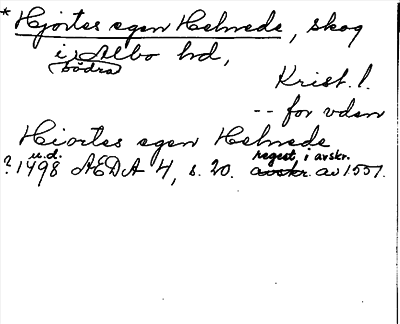 * Hjortes egen Helvede, skog
i Albo hd,
södra
Krist. l.
-- for vden
Hiortes egen Helvede
u.d. regest, i avskr.
? 1498 AEDA 4, s. 20. avskr. av 1551.